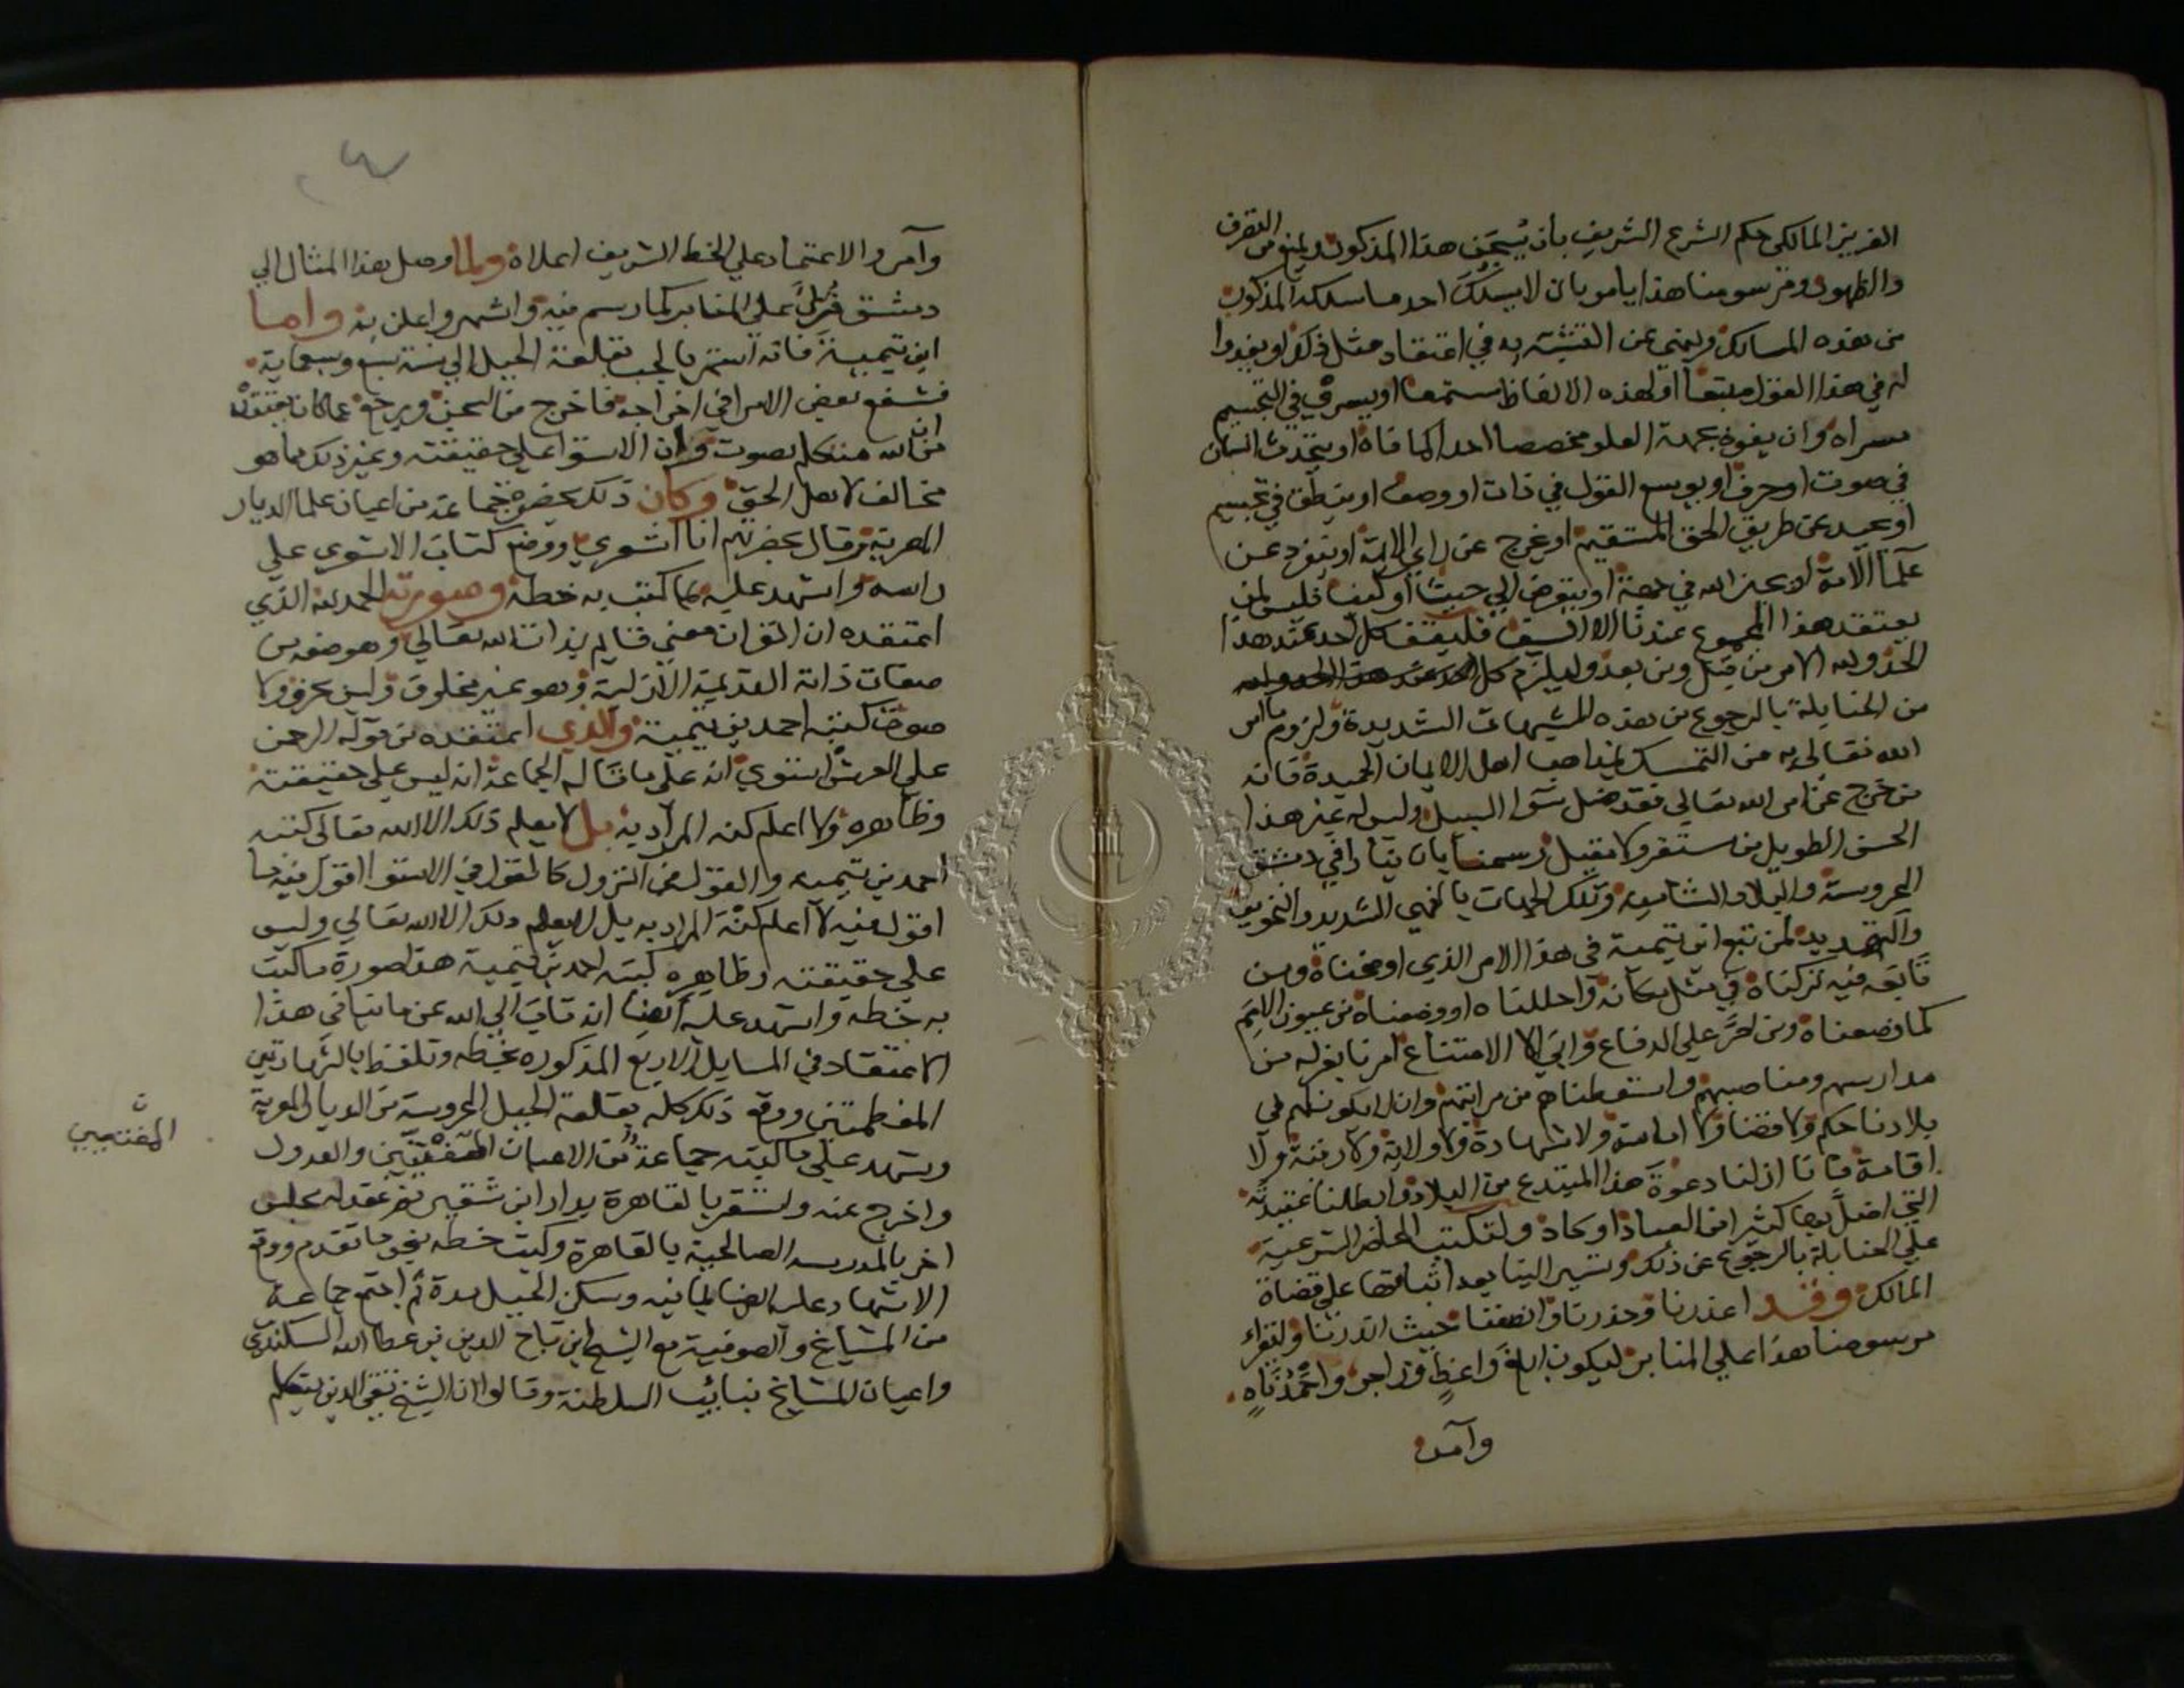 العزيز المالكي حكم الشرع الشريف بان يسجن هذا المذكور ويمنع من التصرف
والظهور ومرسومنا هذا يامر بان لا يسلك احد ما سلكه المذكور
من هذه المسالك وينهى عن التشبه به في اعتقاد مثل ذلك او يغدوا
له في هذا القول متبعا او لهذه الالفاظ مستمعا او يسري في التجسيم
مسراه وان يفوه بجهة العلو مخصصا احدا كما فاه او يتحدث انسان
في صوت او حرف او يوسع القول في ذات او وصف او ينطق في تجسيم
او يحيد عن طريق الحق المستقيم او يخرج عن راي الايمة او ينفرد عن
علما الامة او يحيز الله في جهة او يتعرض الي حيث او كيف فليس لمن
يعتقد هذا المجموع عندنا الا السيف فليقف كل احد عند هذا
الحد ولله الامر من قبل ومن بعد وليلزم كل احد عند هذا الحد ولله
من الحنابلة بالرجوع عن هذه الشبهات الشديدة ولزوم ما امر
الله تعالى به من التمسك بمذاهب اهل الايمان الحميدة فانه
من خرج عن امر الله تعالى فقد ضل سوا السبيل وليس له غير هذا
الحبس الطويل من مستقر ولا مقيل رسمنا بان ينادا في دمشق
المحروسة والبلاد الشامية وتلك الجهات بالنهي الشديد والتخويف
والتهديد لمن تبع ابن تيمية في هذا الامر الذي اوضحناه ومن
تابعه فيه تركناه في مثل مكانه واحللناه او وضعناه من عيون الامم
كما وضعناه ومن اصر علي الدفاع وابى الا الامتناع امرنا بعزله من
مدارسهم ومناصبهم واسقطناهم من مراتبهم وان لا يكون لهم في
بلادنا حكم ولا قضا ولا امامة ولا شهادة ولا ولاية ولا رتبة ولا
اقامة فاننا ازلنا دعوة هذا المبتدع من البلاد وابطلنا عقيدته
التي اضل بها كثيرا من العباد او كاد ولتكتب المحاضر الشرعية
علي الحنابلة بالرجوع عن ذلك وتسير الينا بعد اثباتها علي قضاة
الممالك وقد اعذرنا وحذرنا وانصفنا حيث انذرنا وليقراء
مرسومنا هذا علي المنابر ليكون ابلغ واعظ وزاجر واحمد ناه
وامر
وآمر والاعتماد علي الخط الشريف اعلاه ولما وصل هذا المثال الي
دمشق قرئ علي المنابر كما رسم فيه واشهر واعلن به واما
ابن تيمية فانه استمر بالجب بقلعة الجبل الي سنة سبع وسبعماية
فشفع بعض الامرا في اخراجه فاخرج من السجن ورجع عما كان يعتقده
من ان الله متكلم بصوت وان الاستوا علي حقيقته وغير ذلك مما هو
مخالف لاهل الحق وكان ذلك بحضرة جماعة من اعيان علما الديار
المصرية وقال بحضرتهم انا اشعري ووضع كتاب الاشعري علي
راسه واشهد عليه بما كتب به خطه وصورته الحمد لله الذي
اعتقده ان القران معنى قايم بذات الله تعالي وهو صفة من
صفات ذاته القديمة الازلية وهو غير مخلوق وليس بحرف ولا
صوت كتبه احمد بن تيمية والذي اعتقده من قوله الرحمن
علي العرش استوى انه على ما قاله الجماعة انه ليس علي حقيقته
وظاهره ولا اعلم كنه المراد به بل لا يعلم ذلك الا الله تعالى كتبه
احمد بن تيمية والقول في النزول كالقول في الاستوا اقول فيه ما
اقول فيه لا اعلم كنه المراد به بل لا يعلم ذلك الا الله تعالي وليس
علي حقيقته وظاهره كتبه احمد بن تيمية هذا صورة ما كتب
به خطه واشهد عليه ايضا انه تاب الي الله عن ما ينافي هذا
الاعتقاد في المسايل الاربع المذكورة بخطه وتلفظ بالشهادتين
المعظمتين ووقع ذلك كله بقلعة الجبل المحروسة من الديار المصرية
وشهد علي ما كتبه جماعة من الاعيان المفتيين والعدول
المفتيين
واخرج عنه واستقر بالقاهرة بدار ابن شقير ثم عقد له مجلس
اخر بالمدرسة الصالحية بالقاهرة وكتب خطه بنحو ما تقدم ووقع
الاشهاد عليه ايضا بما فيه وسكن الحبيل مدة ثم اجتمع جماعة
من المشايخ والصوفية مع الشيخ ابن تاج الدين بن عطا الله السكندري
واعيان المشايخ بنايب السلطنة وقالوا ان الشيخ تقي الدين يتكلم